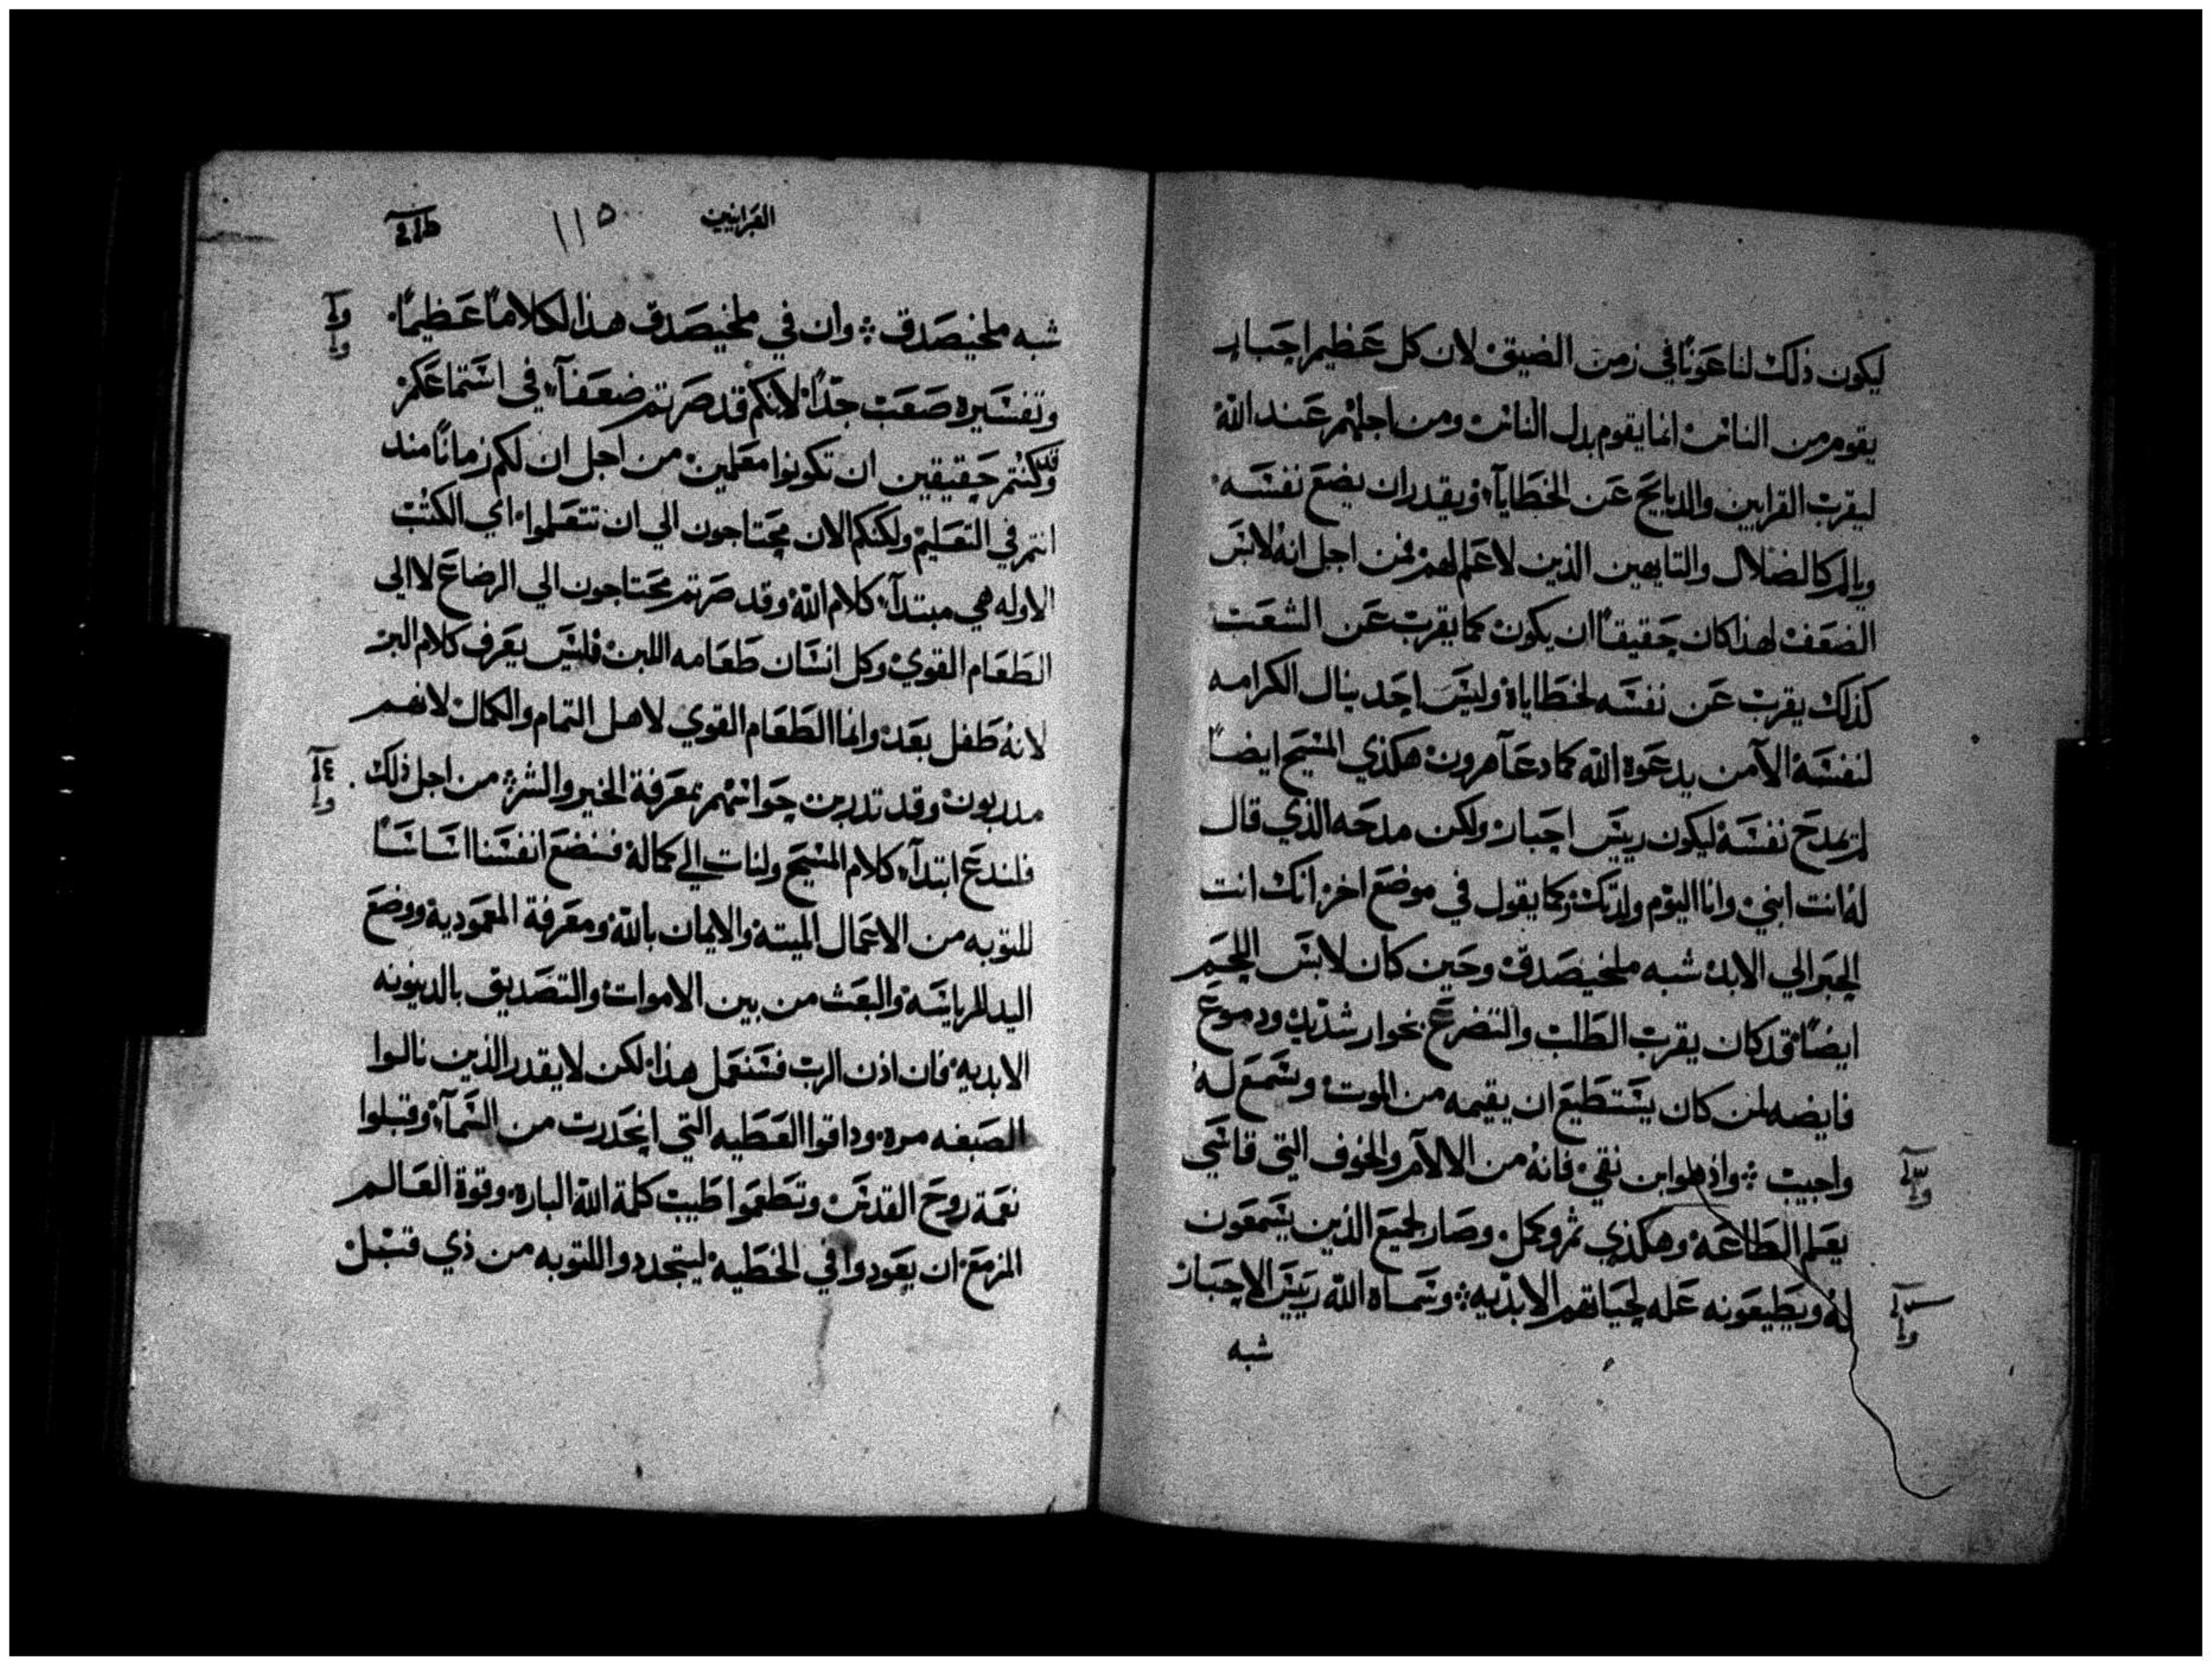 ليكون ذلك لنا عونًا في زمن الضيق لان كل عظيم احبار
يقوم من الناس انما يقوم بدل الناس ومن اجلهم عند الله
ليقرب القرابين والدبايح عن الخطايآ ويقدر ان يضع نفسه
ويالم كالضلال والتايهين الذين لا علم لهم فمن اجل انه لابس
الضعف لهذا كان حقيقًا ان يكون كما يقرب عن الشعب
كذلك يقرب عن نفسه لخطاياه وليس احد ينال الكرامه
لنفسه الا من يدعوه الله كما دعا هرون هكذي المسيح ايضًا
لم يمدح نفسه ليكون رييس احبار ولكن مدحه الذي قال
له انت ابني وانا اليوم ولدتك وكما يقول في موضع اخر انك انت
الحبر الي الابد شبه ملخيصدق وحين كان لابس اللحم
ايضًا قد كان يقرب الطلب والتضرع بخوار شديد ودموع
فايضه لمن كان يستطيع ان يقيمه من الموت وسمع له
واجيب واذ هو ابن نقي فانه من الالام والخوف التي قاسي
يعلم الطاعه وهكذي تم وكمل وصار لجميع الذين يسمعون
له ويطيعونه عله لحياتهم الابديه وسماه الله رييس الاحبار
شبه
العبرانيين
١١٥
شبه ملخيصدق وان في ملخيصدق هذا لكلامًا عظيمًا
وتفسيره صعب جدًا لانكم قد صرتم ضعفآ في استماعكم
وقد كنتم حقيقين ان تكونوا معلمين من اجل ان لكم زمانًا مند
انتم في التعليم ولكنكم الان محتاجون الي ان تتعلموا اي الكتب
الاوله هي مبتدآ كلام الله وقد صرتم محتاجون الي الرضاع لا الي
الطعام القوي وكل انسان طعامه اللبن فليس يعرف كلام البر
لانه طفل بعد وانما الطعام القوي لاهل التمام والكمال لانهم
مدربون وقد تدربت حواسهم بمعرفة الخير والشر من اجل ذلك
فلندع ابتدآ كلام المسيح ولنات الي كماله فنضع انفسنا اساسًا
للتوبه من الاعمال الميته والايمان بالله ومعرفة المعموديه ووضع
اليد للرياسه والبعث من بين الاموات والتصديق بالدينونه
الابديه فان اذن الرب فسنعمل هذا لكن لا يقدر الذين نالوا
الصبغه مره وداقوا العطيه التي انحدرت من السمآ وقبلوا
نعمة روح القدس وتطعموا طيب كلمة الله الباره وقوة العالم
المزمع ان يعودوا في الخطيه ليتجددوا للتوبه من ذي قبل